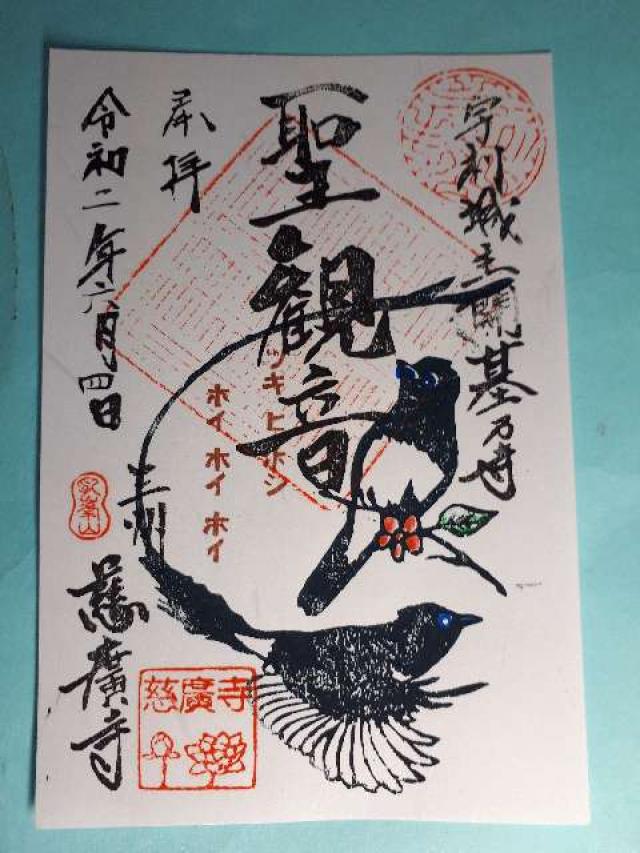 宇利城主開基乃寺
聖観音
ツキ ヒ ホシ
ホイ ホイ ホイ
奉拝
令和二年六月四日
三州
慈廣寺
慈廣寺